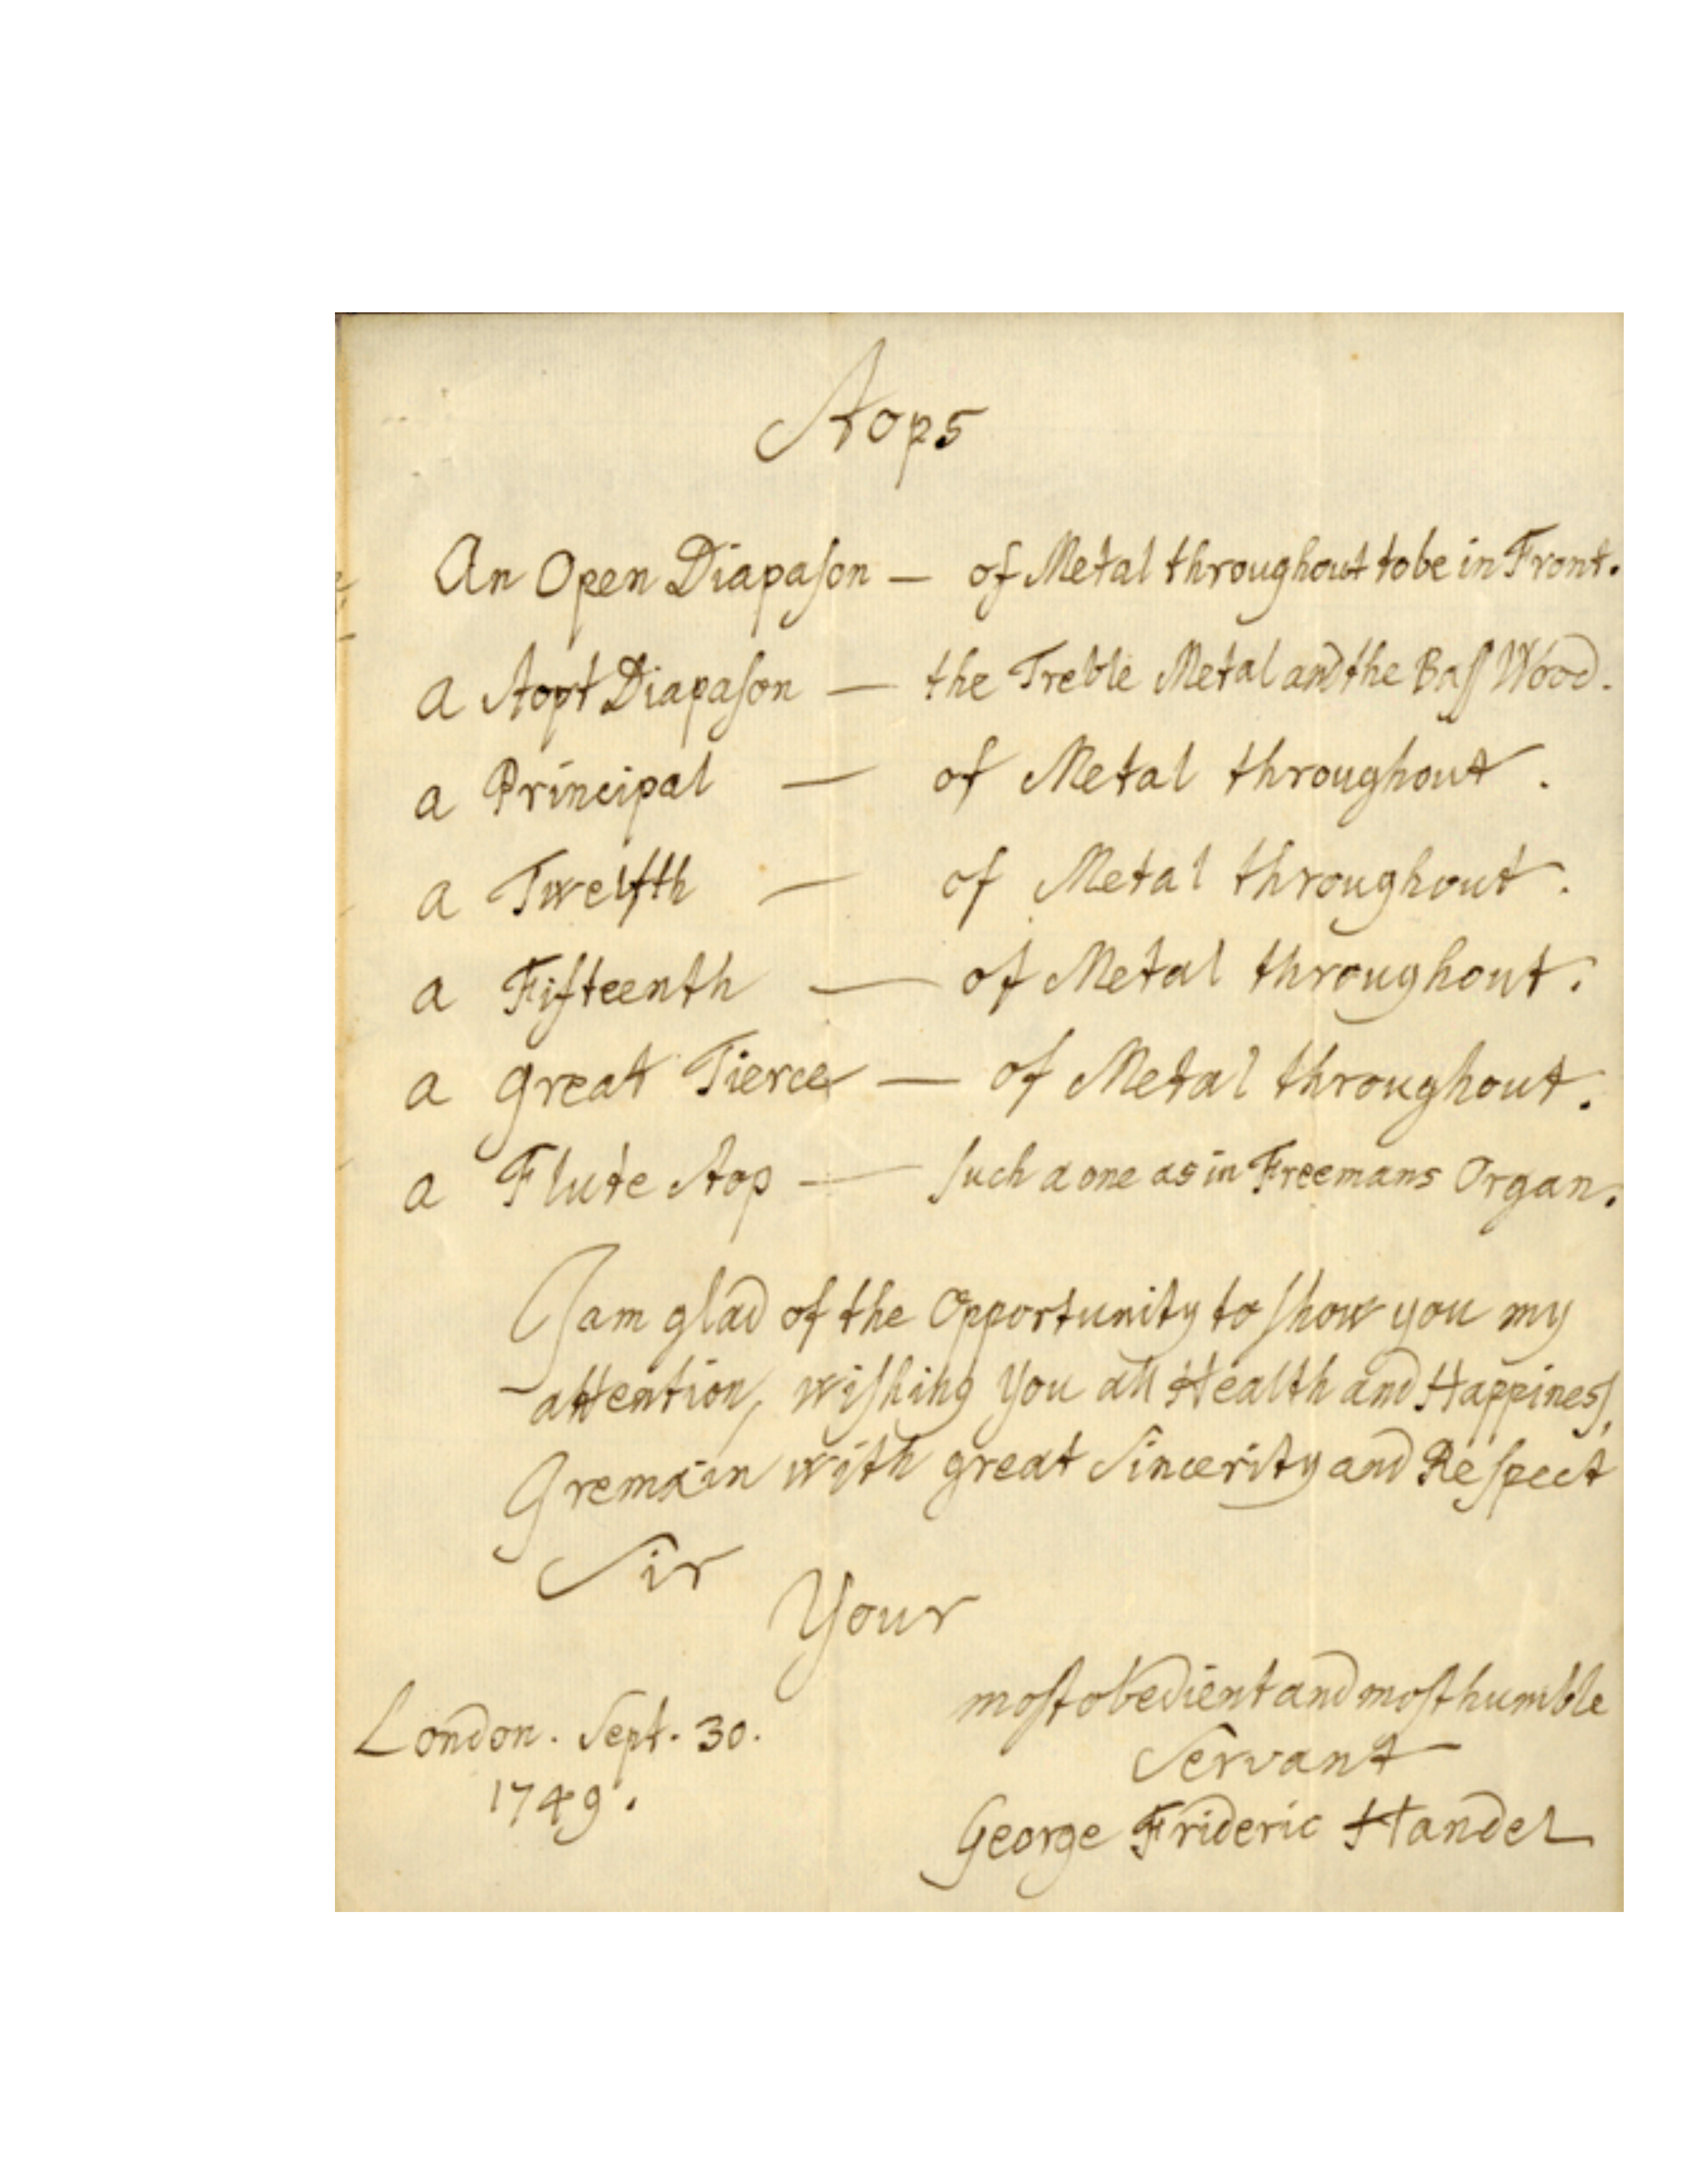 Stops
An Open Diapaſon — of Metal throughout to be in Front.
a Stopt Diapaſon — the Treble Metal and the Baſſ Wood.
a Principal — of Metal throughout.
a Twelfth — of Metal throughout.
a Fifteenth — of Metal throughout.
a great Tierce — of Metal throughout.
a Flute Stop — ſuch a one as in Freemans Organ.
I am glad of the Opportunity to ſhow you my
attention, wiſhing you all Health and Happineſſ,
I remain with great Sincerity and Reſpect
Sir
Your
moſt obedient and moſt humble
Servant
London. Sept. 30.
1749.
George Frideric Handel